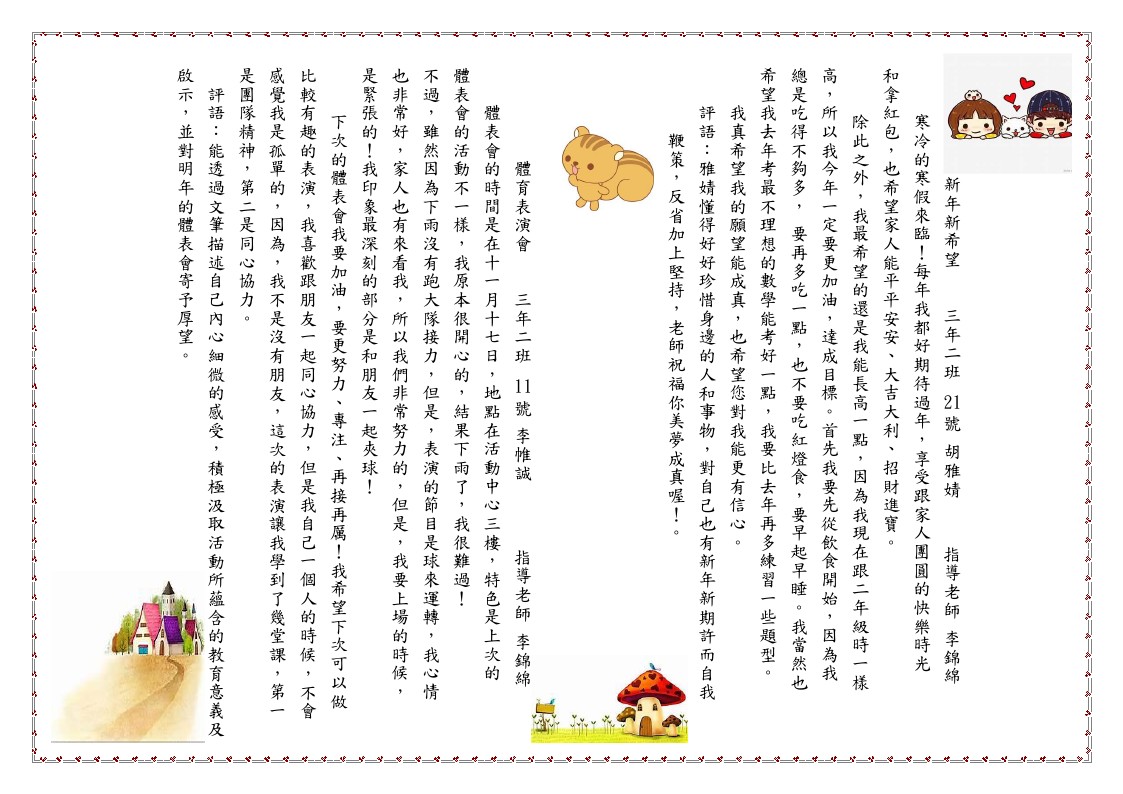 新年新希望　三年二班 21號 胡雅婧　指導老師 李錦綿
寒冷的寒假來臨！每年我都好期待過年，享受跟家人團圓的快樂時光
和拿紅包，也希望家人能平平安安、大吉大利、招財進寶。
除此之外，我最希望的還是我能長高一點，因為我現在跟二年級時一樣
高，所以我今年一定要更加油，達成目標。首先我要先從飲食開始，因為我
總是吃得不夠多，要再多吃一點，也不要吃紅燈食，要早起早睡。我當然也
希望我去年考最不理想的數學能考好一點，我要比去年再多練習一些題型。
我真希望我的願望能成真，也希望您對我能更有信心。
評語：雅婧懂得好好珍惜身邊的人和事物，對自己也有新年新期許而自我
鞭策，反省加上堅持，老師祝福你美夢成真喔！。
體育表演會　三年二班 11號 李惟誠　指導老師 李錦綿
體表會的時間是在十一月十七日，地點在活動中心三樓，特色是上次的
體表會的活動不一樣，我原本很開心的，結果下雨了，我很難過！
不過，雖然因為下雨沒有跑大隊接力，但是，表演的節目是球來運轉，我心情
也非常好，家人也有來看我，所以我們非常努力的，但是，我要上場的時候，
是緊張的！我印象最深刻的部分是和朋友一起夾球！
下次的體表會我要加油，要更努力、專注、再接再厲！我希望下次可以做
比較有趣的表演，我喜歡跟朋友一起同心協力，但是我自己一個人的時候，不會
感覺我是孤單的，因為，我不是沒有朋友，這次的表演讓我學到了幾堂課，第一
是團隊精神，第二是同心協力。
評語：能透過文筆描述自己內心細微的感受，積極汲取活動所蘊含的教育意義及
啟示，並對明年的體表會寄予厚望。